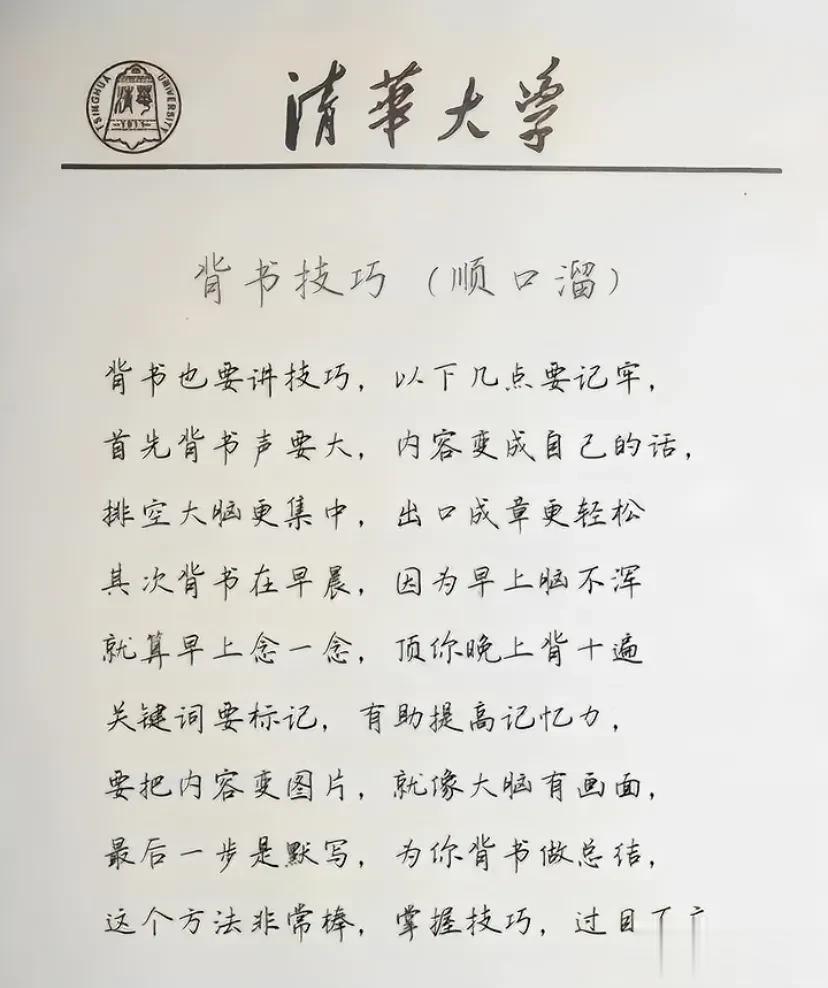 TSINGHUA UNIVERSITY
清華
1911
清華大学
背书技巧（顺口溜）
背书也要讲技巧，以下几点要记牢，
首先背书声要大，内容变成自己的话，
排空大脑更集中，出口成章更轻松
其次背书在早晨，因为早上脑不浑
就算早上念一念，顶你晚上背十遍
关键词要标记，有助提高记忆力，
要把内容变图片，就像大脑有画面，
最后一步是默写，为你背书做总结，
这个方法非常棒，掌握技巧，过目